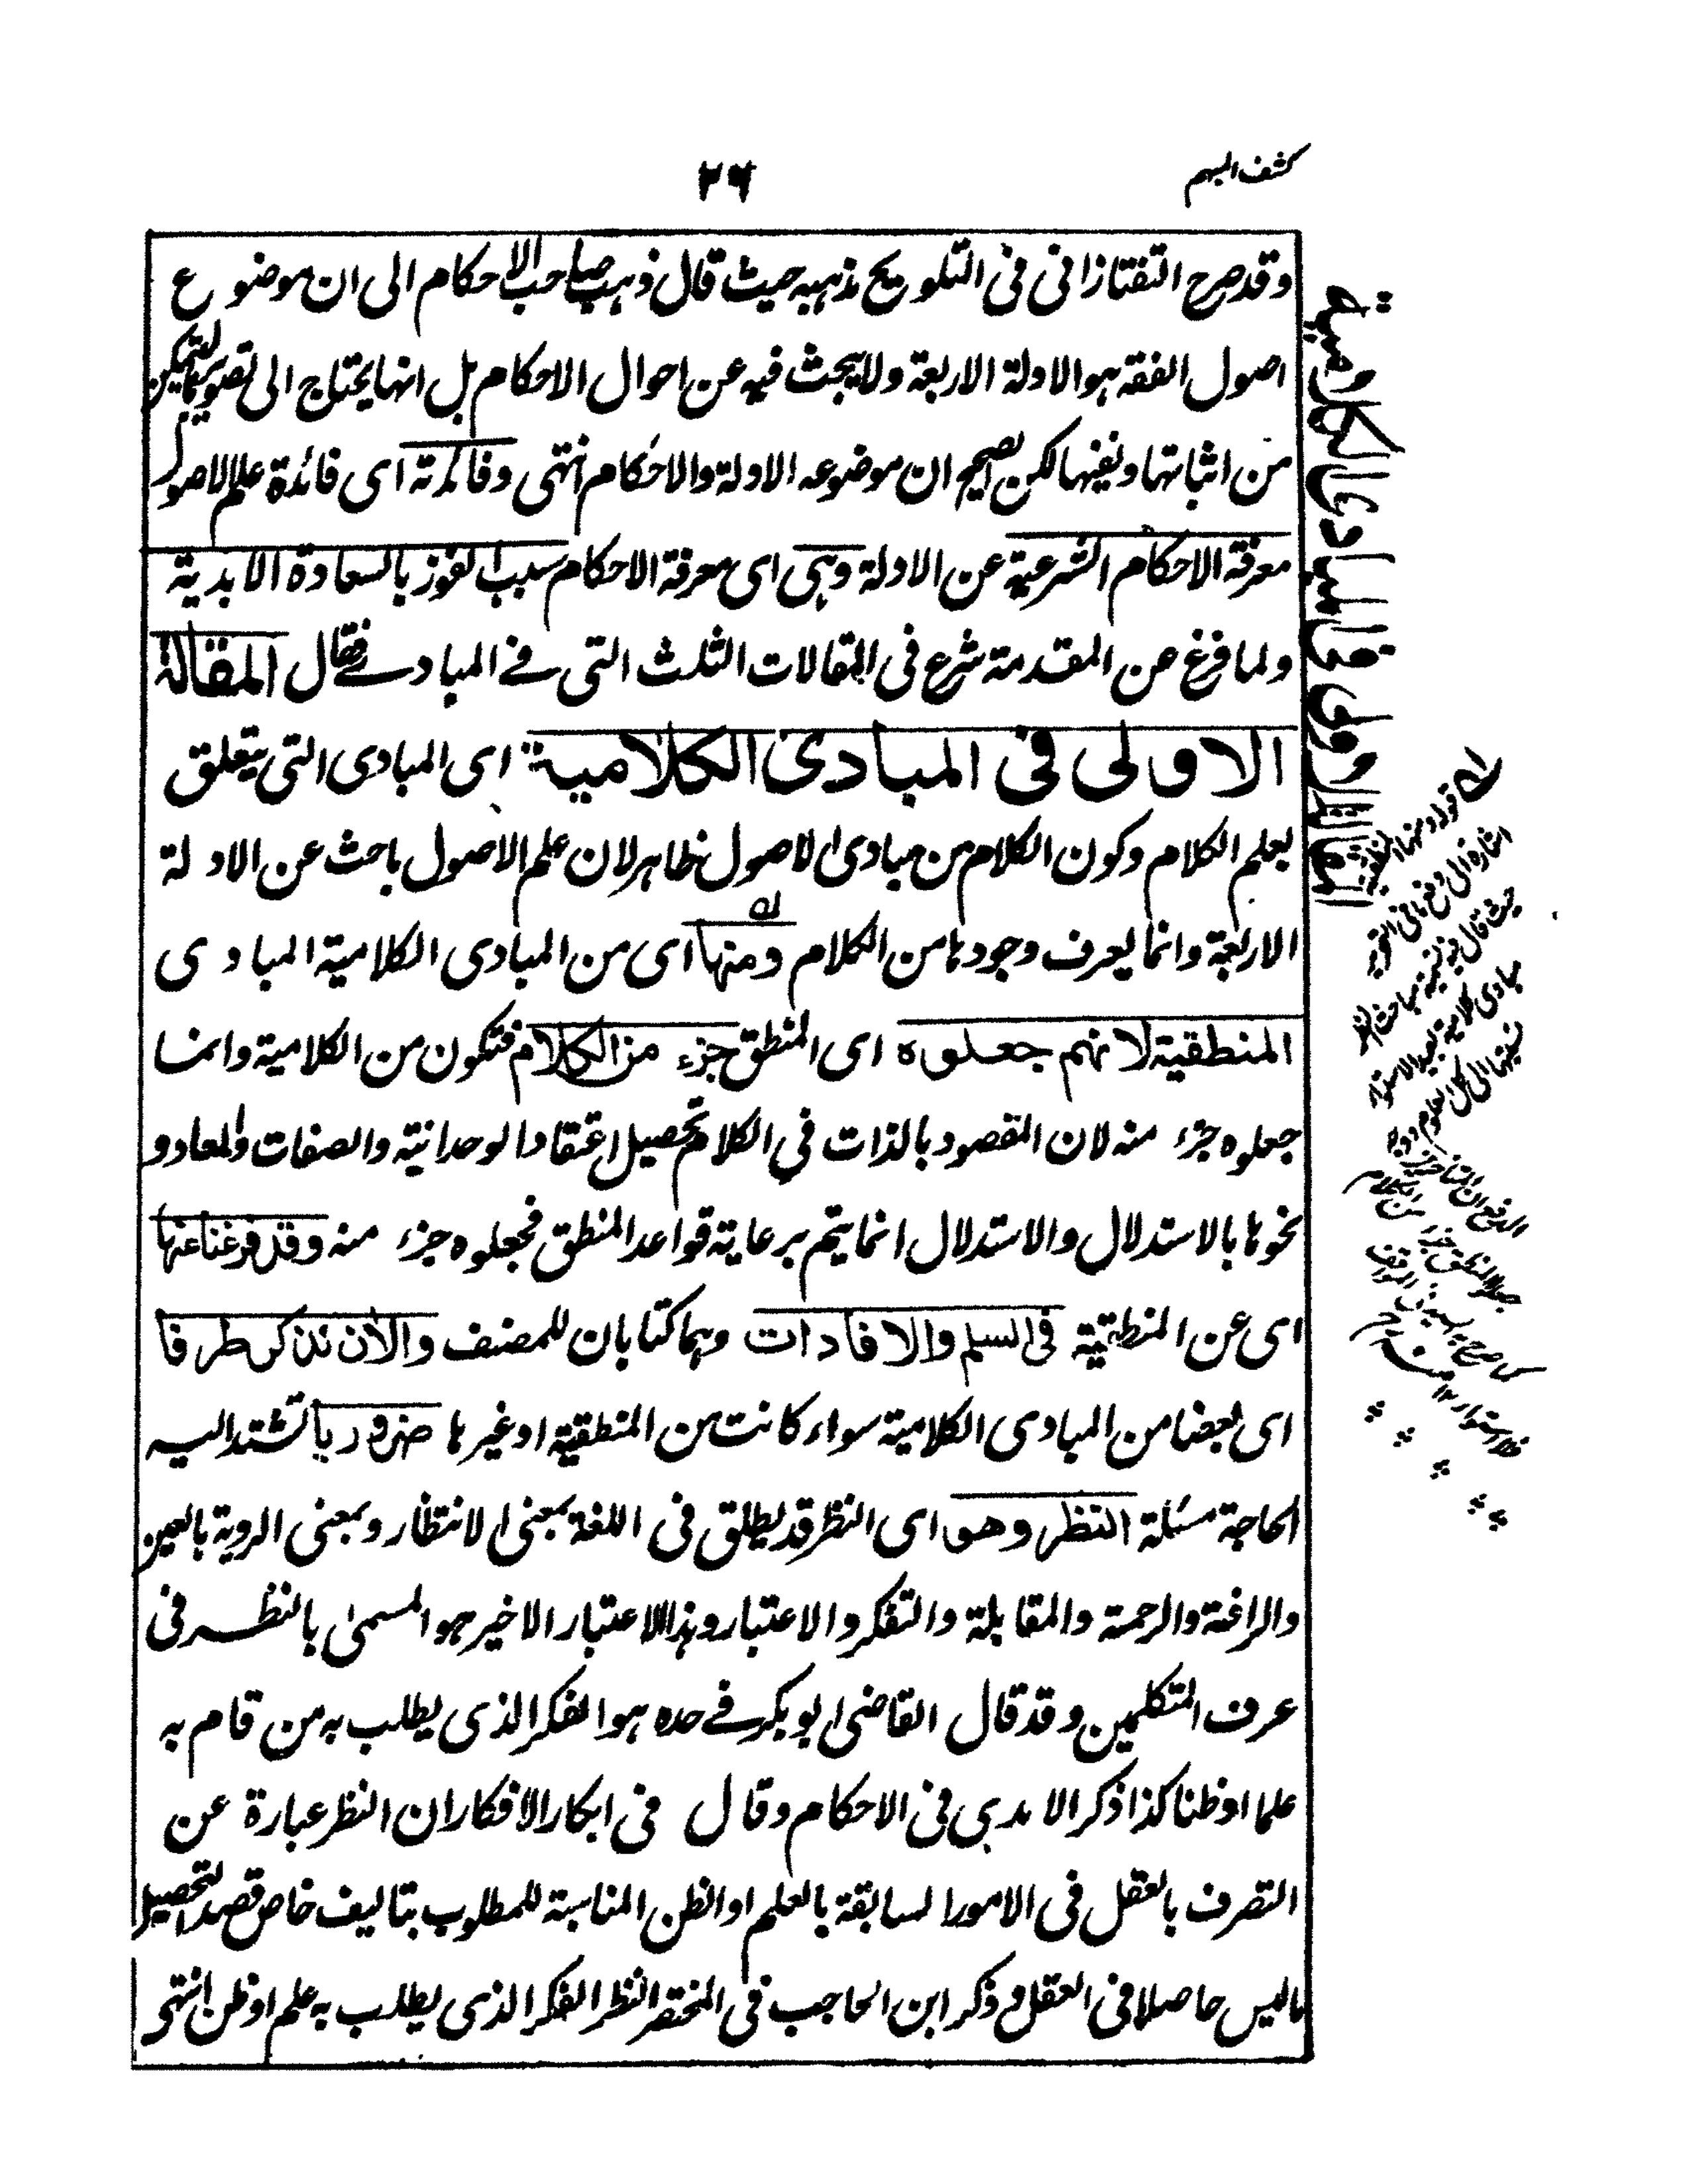 كشف المبهم
٢٦
وقد صرح التفتازانى فى التلويح بمذهبه حيث قال ذهب صاحب الاحكام الى ان موضوع
اصول الفقه هو الادلة الاربعة ولا يبحث فيه عن احوال الاحكام بل انها يحتاج الى تصويرها ليتمكن
من اثباتها ونفيها لكن الصحيح ان موضوعه الادلة والاحكام انتهى وفائدته اى فائدة علم الاصول
معرفة الاحكام الشرعية عن الادلة وهى اى معرفة الاحكام سبب الفوز بالسعادة الابدية
ولما فرغ من المقدمة شرع فى المقالات الثلث التى فے المبادے فقال المقالة
الاولى فى المبادى الكلامية اى المبادى التى يتعلق
بعلم الكلام وكون الكلام من مبادى الاصول ظاهر لان علم الاصول باحث عن الادلة
الاربعة وانما يعرف وجودها من الكلام ومنها اى من المبادى الكلامية المبادى
المنطقية لانهم جعلوه اى المنطق جزء من الكلام فتكون من الكلامية وانما
جعلوه جزء منه لان المقصود بالذات فى الكلام تحصيل اعتقاد الوحدانية والصفات والمعاد و
نحوها بالاستدلال والاستدلال انما يتم برعاية قواعد المنطق فجعلوه جزء منه وقد فرغنا عنها
اى عن المنطقية فى السلم والافادات وهما كتابان للمصنف والآن نذكر طرفا
اى بعضا من المبادى الكلامية سواء كانت من المنطقية او غيرها ضروريا تشتد اليه
الحاجة مسئلة النظر وهو اى النظر قد يطلق فى اللغة بمعنى الانتظار وبمعنى الروية بالعين
والرافة والرحمة والمقابلة والتفكر والاعتبار وهذا الاعتبار الاخير هو المسمى بالنظر فى
عرف المتكلمين وقد قال القاضى ابو بكر فے حده هو الفكر الذى يطلب به من قام به
علما او ظنا كذا ذكر الامدى فى الاحكام وقال فى ابكار الافكار ان النظر عبارة عن
التصرف بالعقل فى الامور السابقة بالعلم او الظن المناسبة للمطلوب بتاليف خاص قصدا لتحصيل
ما ليس حاصلا فى العقل وذكر ابن الحاجب فى المختصر النظر الفكر الذى يطلب به علم او ظن انتهى
المقالة الاولى فى المبادى الكلامية